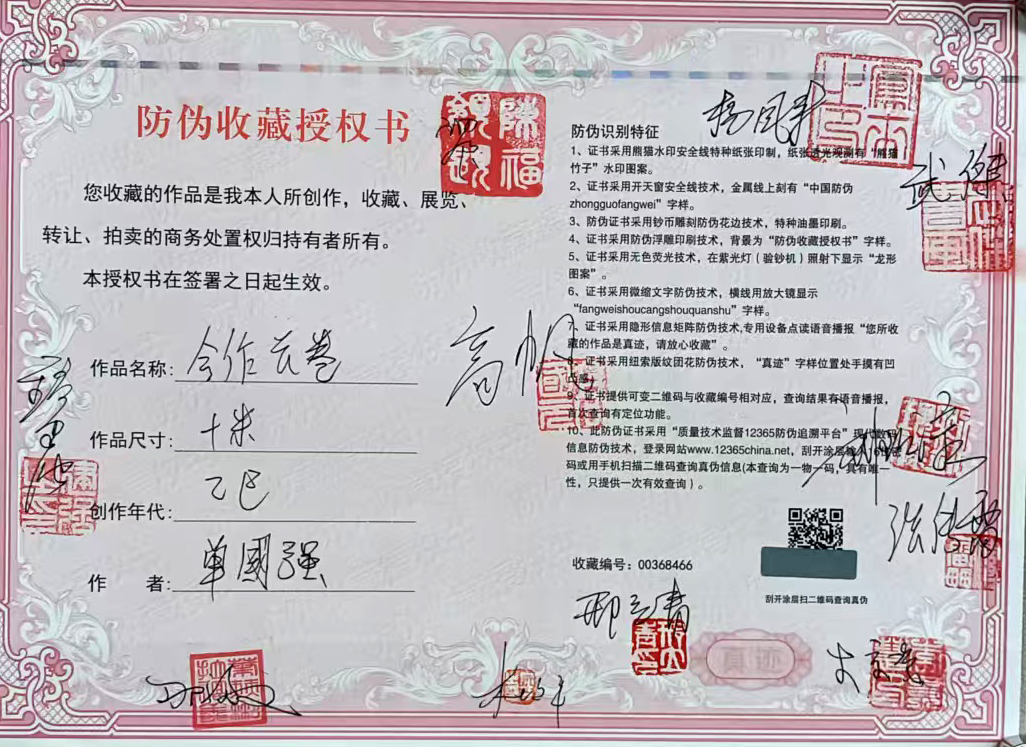 防伪收藏授权书
您收藏的作品是我本人所创作，收藏、展览、
转让、拍卖的商务处置权归持有者所有。
本授权书在签署之日起生效。
作品名称：合作长卷
作品尺寸：十米
创作年代：乙巳
作　　者：单國强
高帆
防伪识别特征
杨凤来
1、证书采用熊猫水印安全线特种纸张印制，纸张透光观测有“熊猫
竹子”水印图案。
2、证书采用开天窗安全线技术，金属线上刻有“中国防伪
zhongguofangwei”字样。
3、防伪证书采用钞币雕刻防伪花边技术，特种油墨印刷。
4、证书采用防伪浮雕印刷技术，背景为“防伪收藏授权书”字样。
5、证书采用无色荧光技术，在紫光灯（验钞机）照射下显示“龙形
图案”。
6、证书采用微缩文字防伪技术，横线用放大镜显示
“fangweishoucangshouquanshu”字样。
7、证书采用隐形信息矩阵防伪技术,专用设备点读语音播报“您所收
藏的作品是真迹，请放心收藏”。
8、证书采用纽索版纹团花防伪技术，“真迹”字样位置处手摸有凹
凸感。
9、证书提供可变二维码与收藏编号相对应，查询结果有语音播报，
首次查询有定位功能。
10、此防伪证书采用“质量技术监督12365防伪追溯平台”现代数码
信息防伪技术，登录网站www.12365china.net，刮开涂层输入16位号
码或用手机扫描二维码查询真伪信息(本查询为一物一码，具有唯一
性，只提供一次有效查询）。
收藏编号：00368466
刮开涂层扫二维码查询真伪
邢立青
真迹